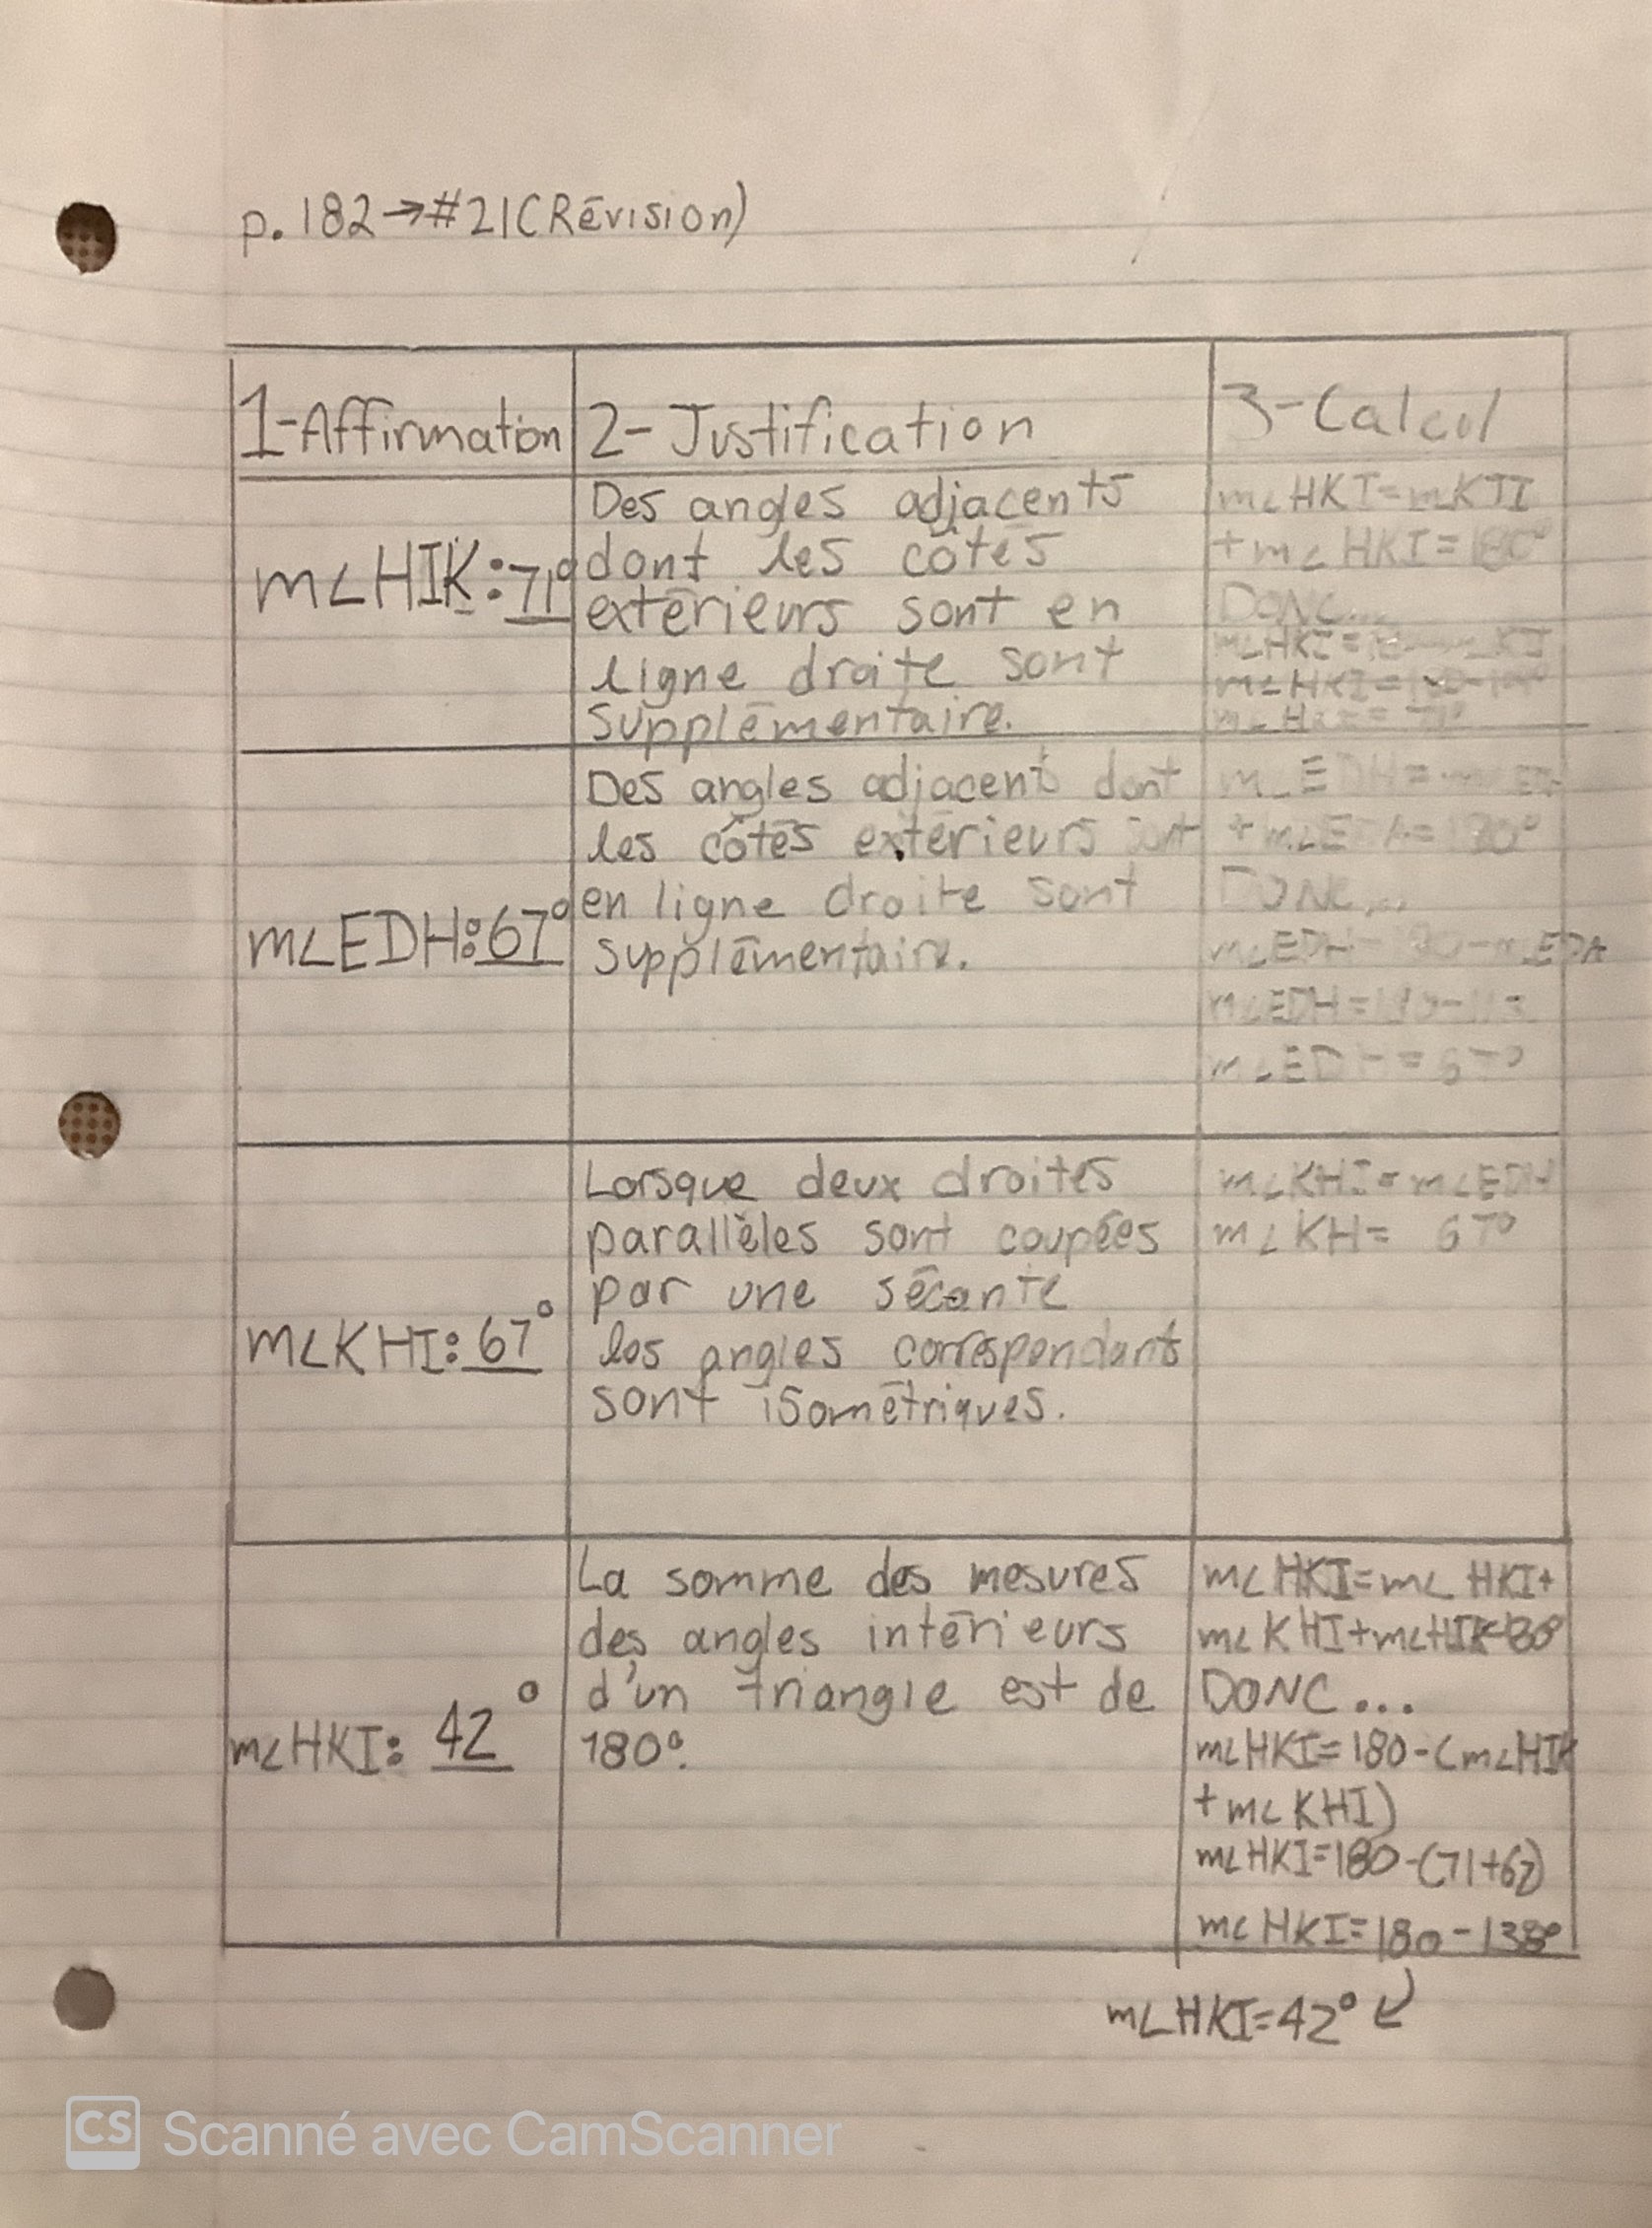 p. 182→#21(Révision)
1-Affirmation
2-Justification
3-Calcul
m∠HIK:71°
Des angles adjacents
dont les côtés
extérieurs sont en
ligne draite sont
supplémentaire.
m∠HKI=mKJI
+m∠HKI=180°
DONC...
m∠HKI=
m∠HKI=
m∠EDH:67°
Des angles adjacent dont
les côtés extérieurs sont
en ligne droite sont
supplémentaire.
m∠EDH=
+m∠EDA=180°
DONC...
m∠EDH=180-m∠EDA
m∠EDH=180-113
m∠EDH=67°
m∠KHI:67°
Lorsque deux droites
parallèles sont coupées
par une sécante
les angles correspondants
sont isométriques.
m∠KHI=m∠EDH
m∠KH= 67°
m∠HKI: 42°
La somme des mesures
des angles intérieurs
d'un triangle est de
180°.
m∠HKI=m∠HKI+
m∠KHI+m∠HIK=180
DONC...
m∠HKI=180-(m∠HIK
+m∠KHI)
m∠HKI=180-(71+67)
m∠HKI=180-138°
m∠HKI=42°
CS Scanné avec CamScanner